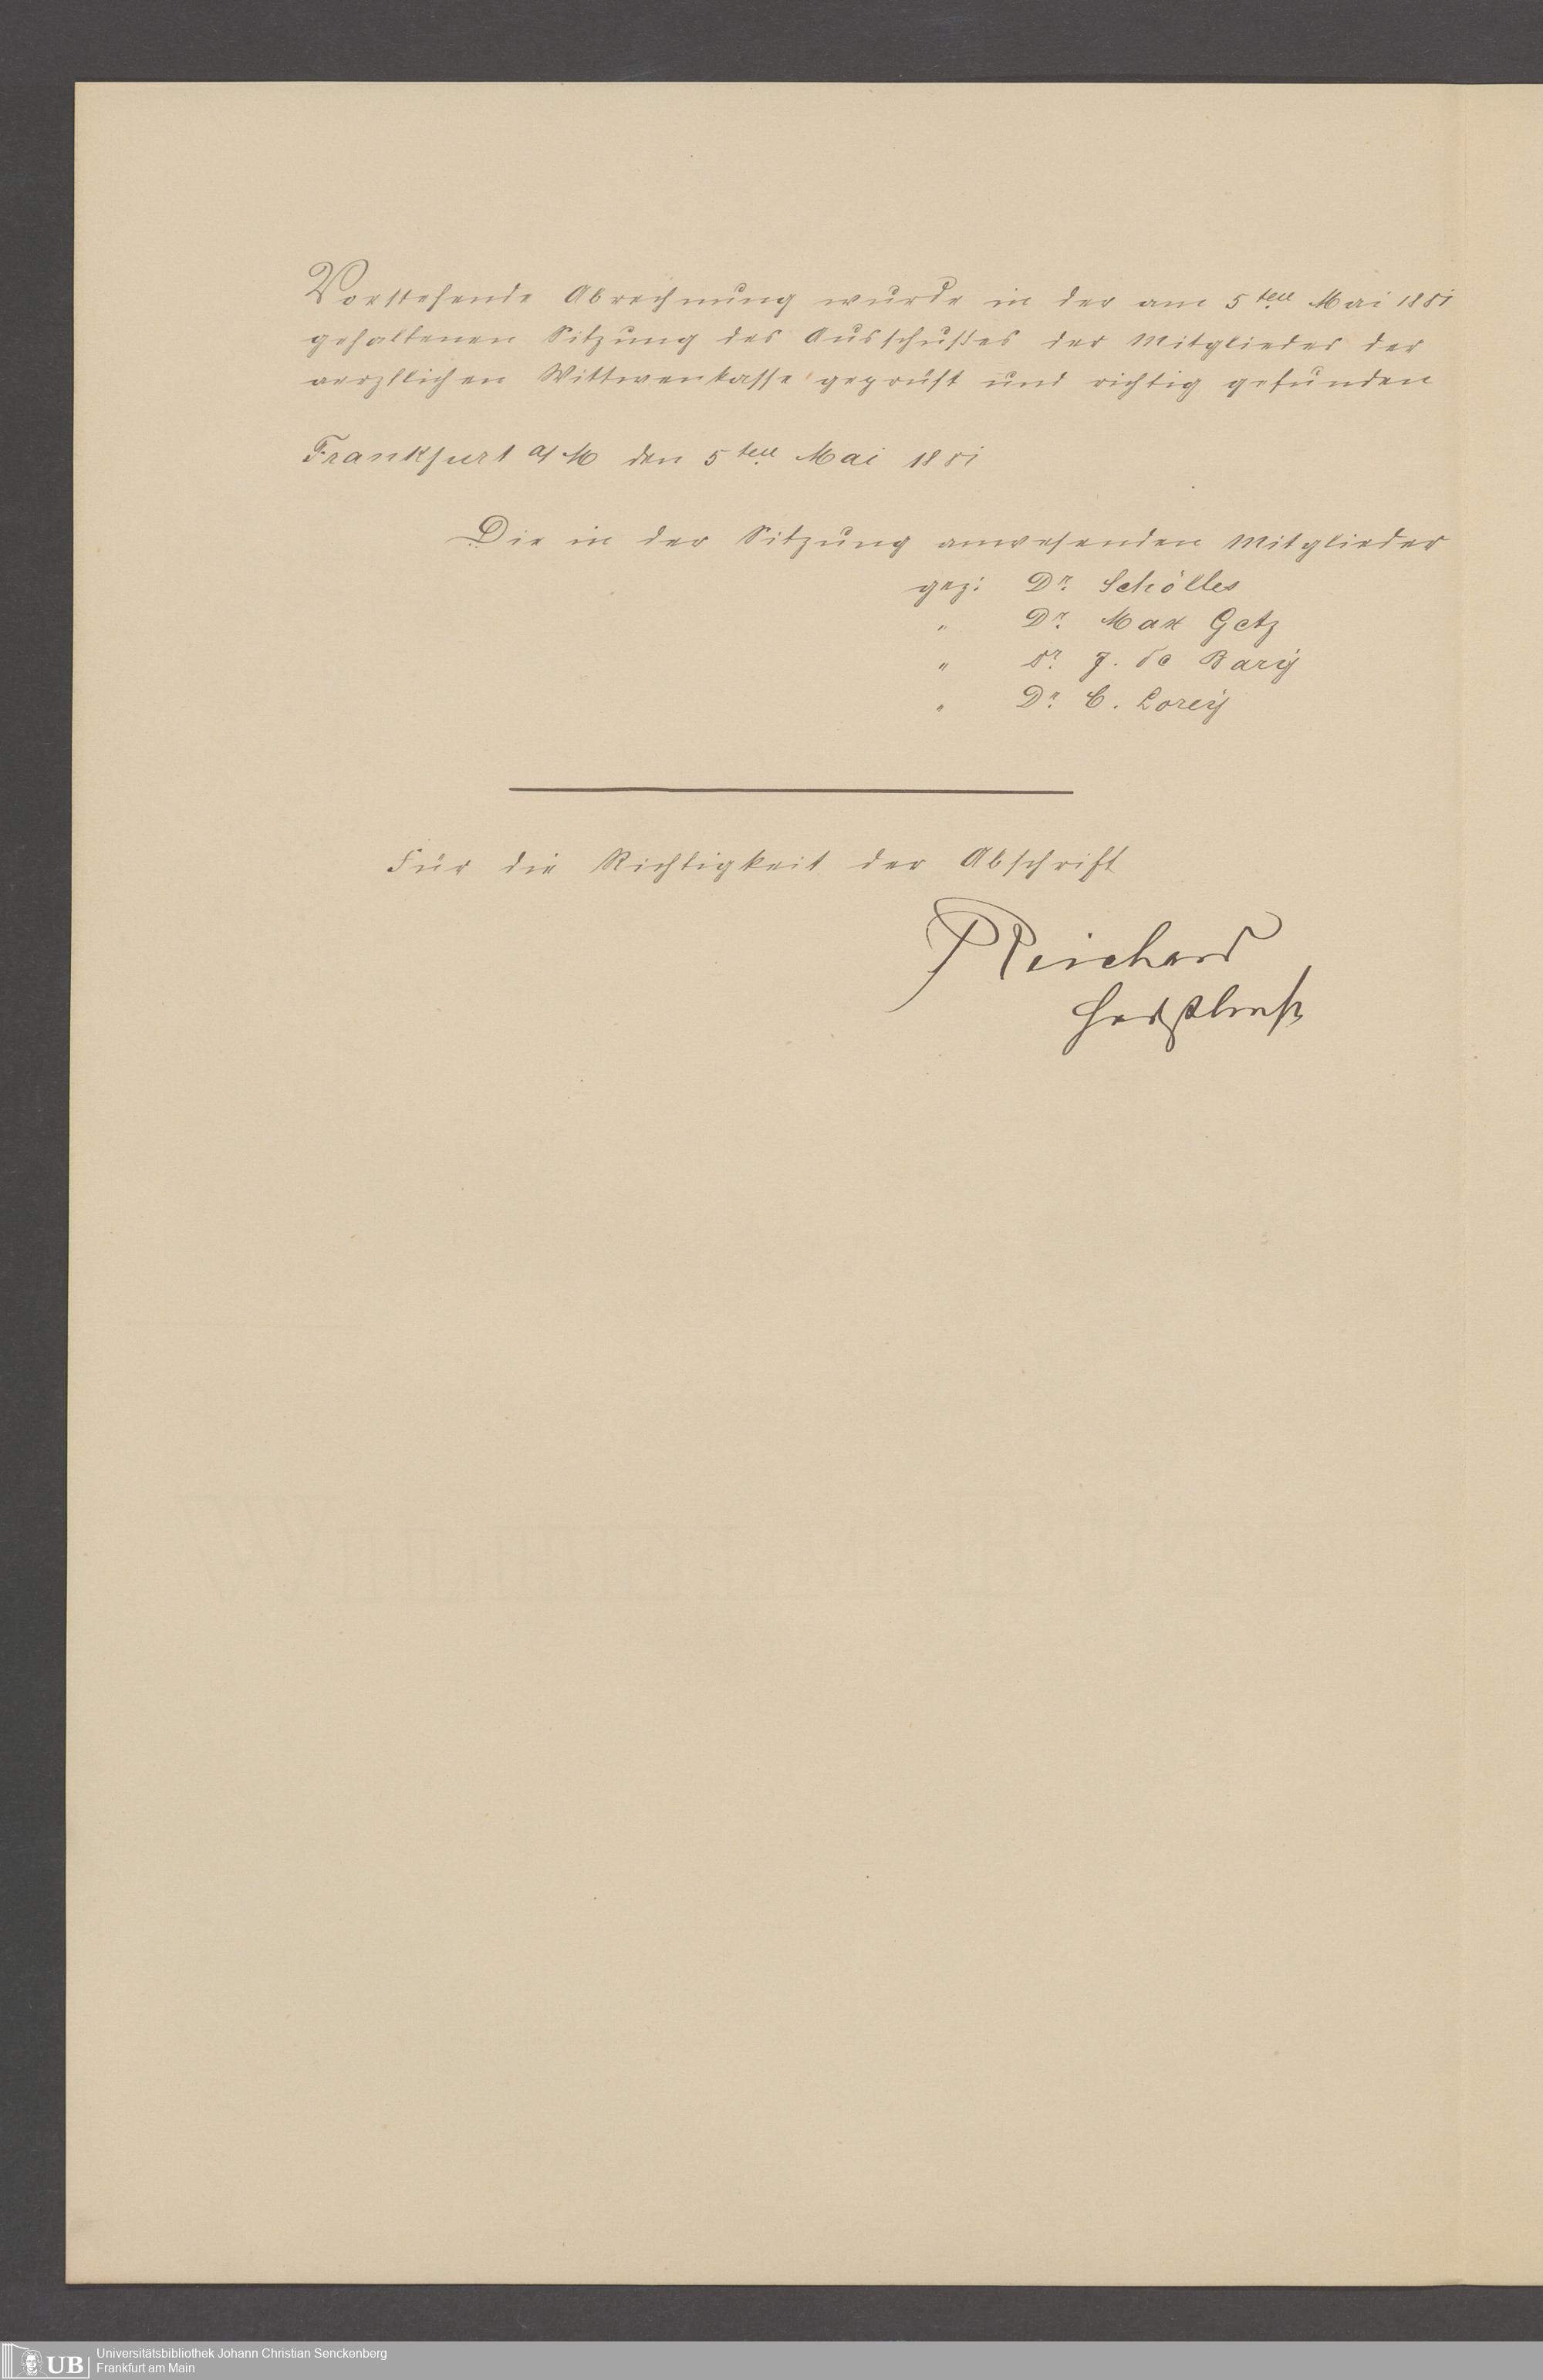 Vorstehende Abrechnung wurde in der am 5ten Mai 1881
gehaltenen Sitzung des Ausschußes der Mitglieder der
aerztlichen Wittwenkasse geprüft und richtig gefunden
Frankfurt a/M den 5ten Mai 1881
Die in der Sitzung anwesenden Mitglieder
gez: Dr. Schölles
" Dr. Max Getz
" Dr. J. de Barÿ
" Dr. C. Loreÿ
Für die Richtigkeit der Abschrift
Reichard
UB
Universitätsbibliothek Johann Christian Senckenberg
Frankfurt am Main